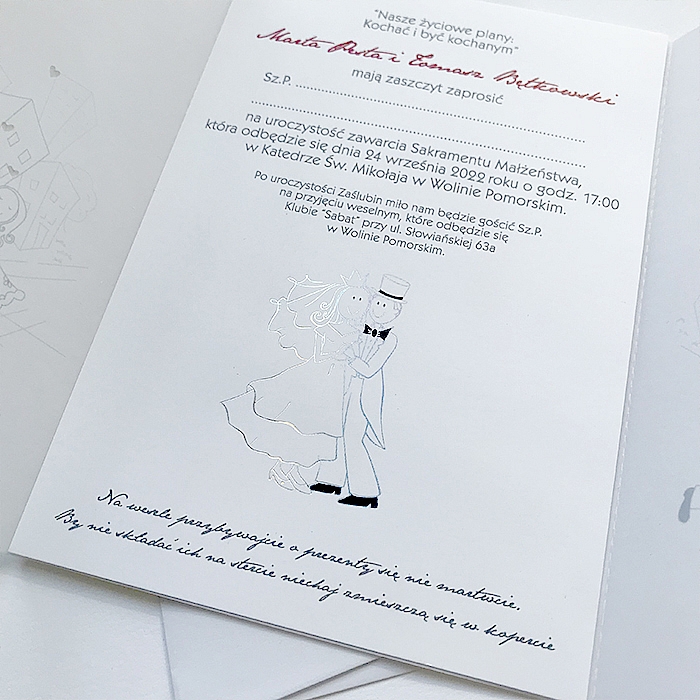 "Nasze życiowe plany:
Kochać i być kochanym"
Marta Pesta i Tomasz Bętkowski
mają zaszczyt zaprosić
Sz.P. ........................................................................
........................................................................
na uroczystość zawarcia Sakramentu Małżeństwa,
która odbędzie się dnia 24 września 2022 roku o godz. 17:00
w Katedrze Św. Mikołaja w Wolinie Pomorskim.
Po uroczystości Zaślubin miło nam będzie gościć Sz.P.
na przyjęciu weselnym, które odbędzie się
Klubie "Sabat" przy ul. Słowiańskiej 63a
w Wolinie Pomorskim.
Na wesele przybywajcie o prezenty się nie martwcie.
By nie składać ich na stercie niechaj zmieszczą się w kopercie